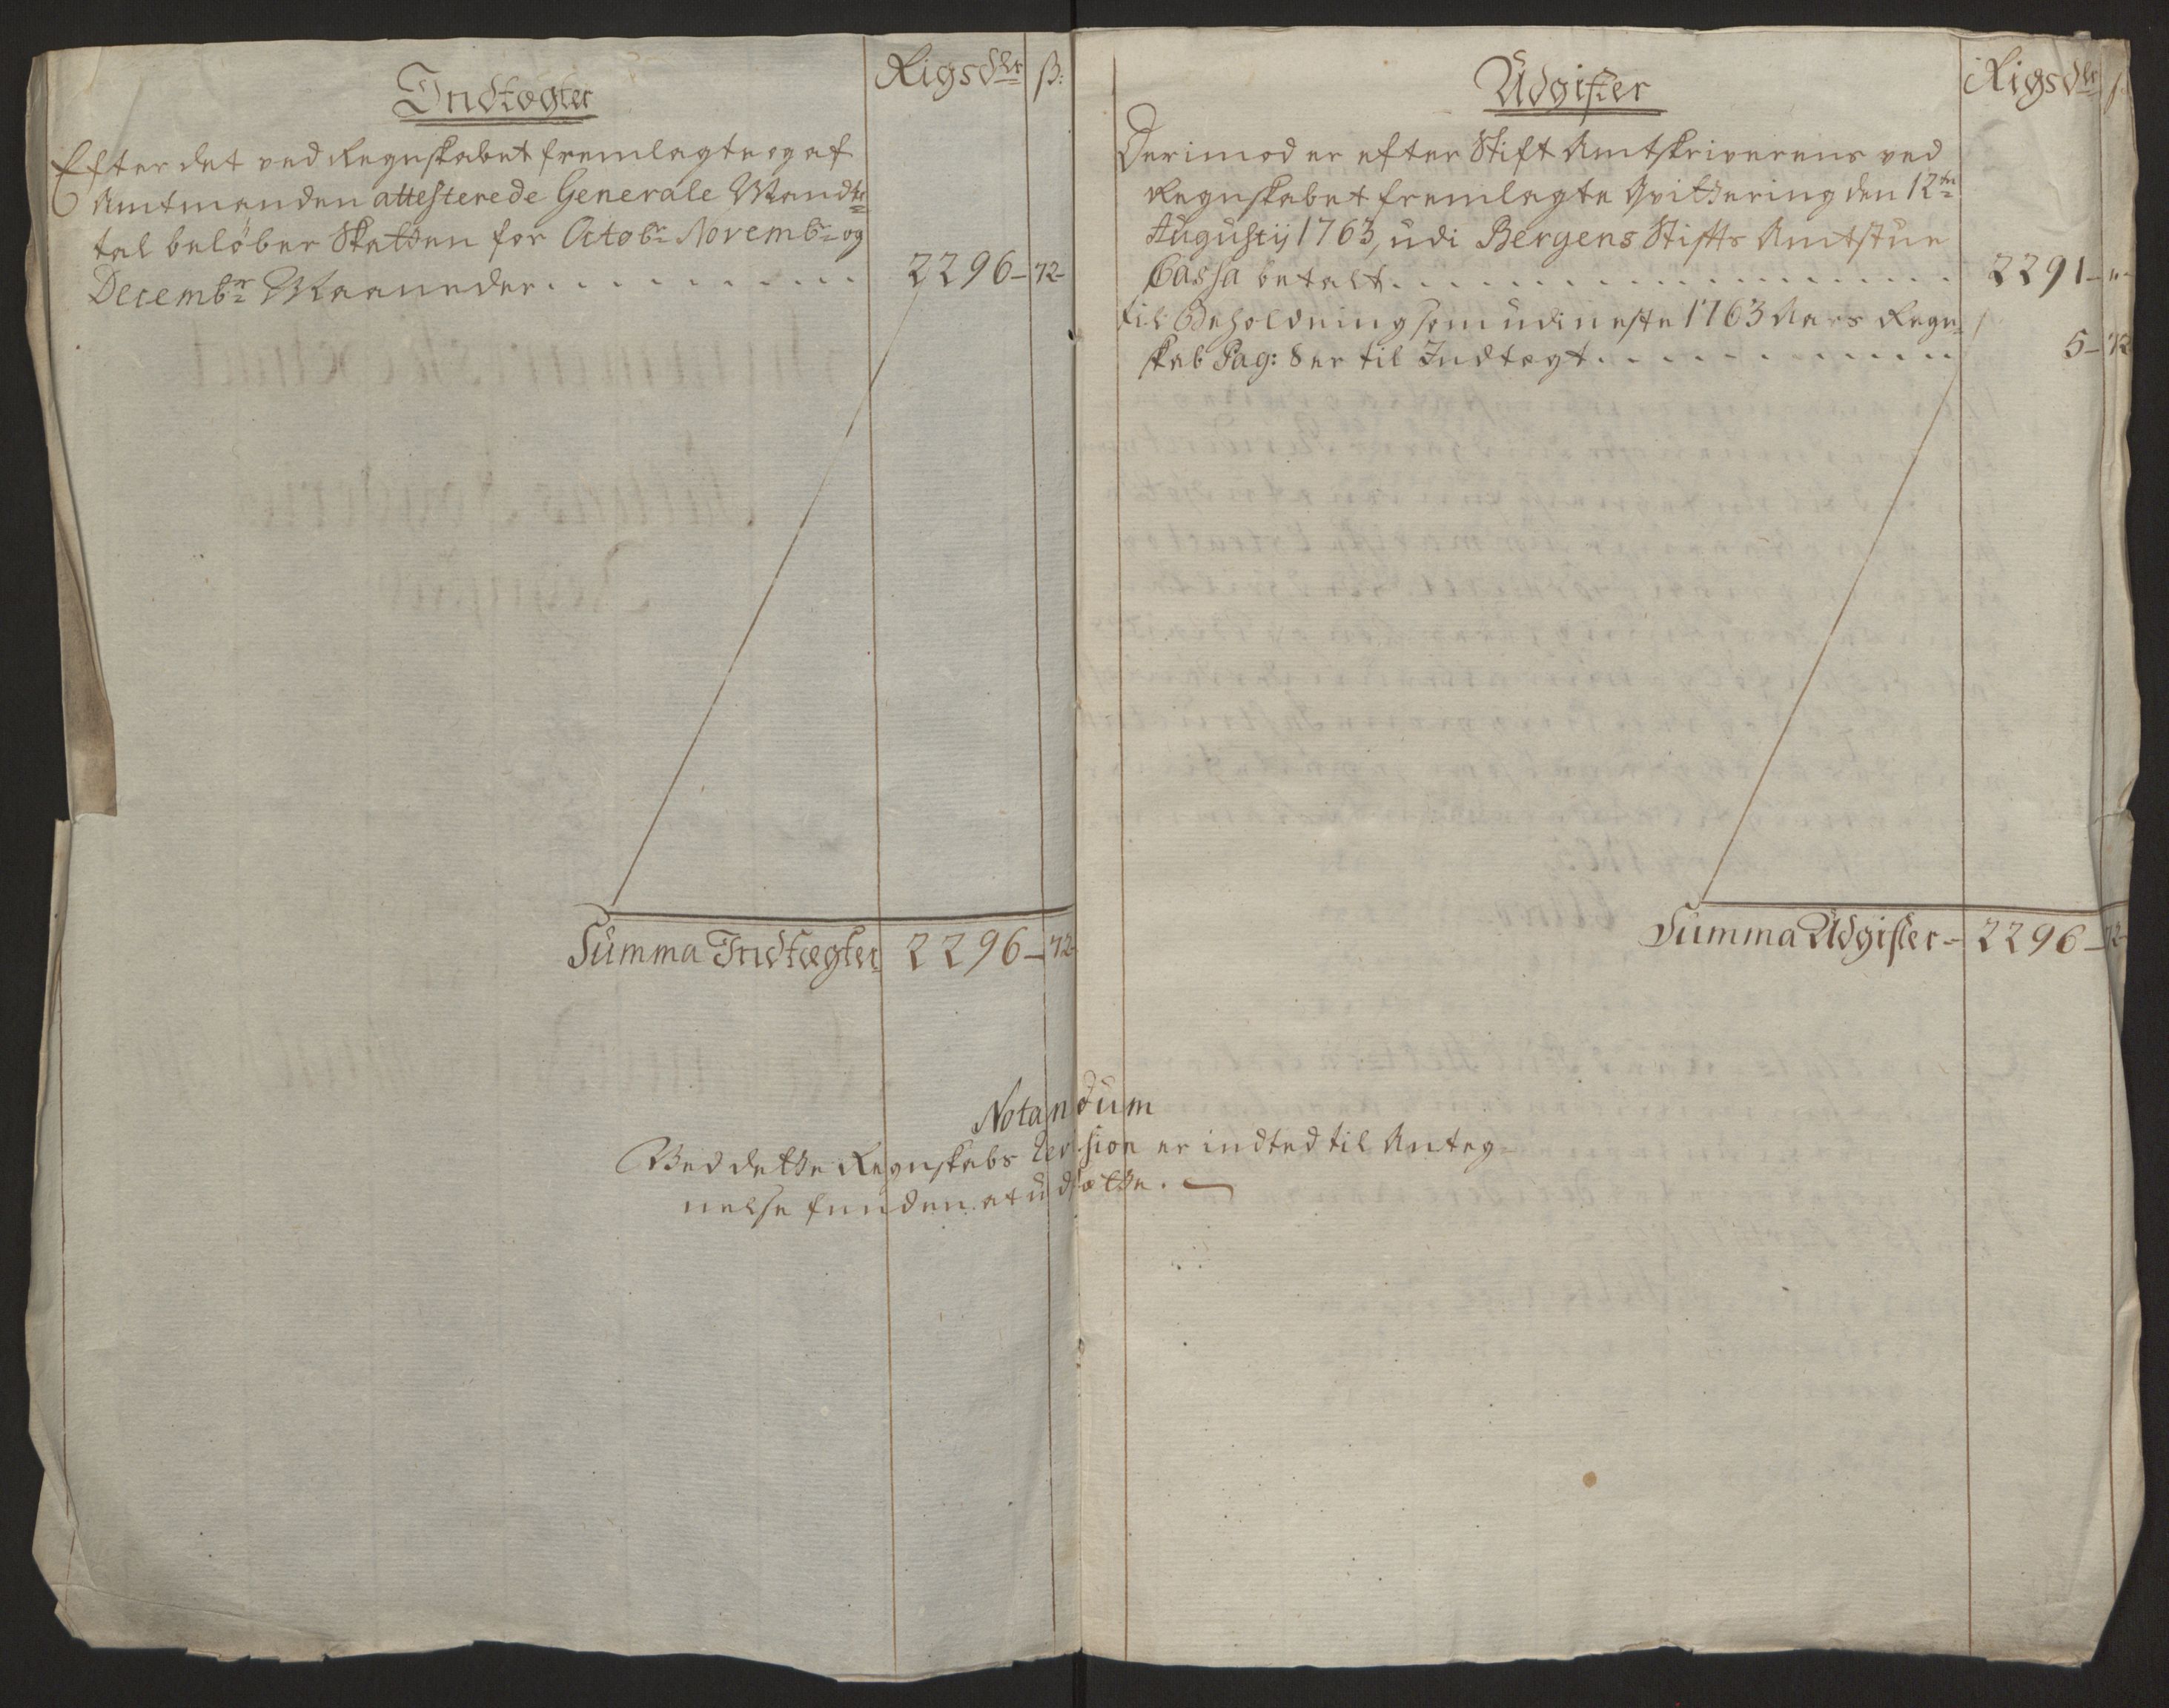 Indtægter
Rigsdlr ß:
Efter det ved Regnskabet fremlagte og af
Amtmanden attesterede Generale Mandtr
tal beløber Skatten for Octobr Novembr og
Decembr Maaneder . . . . . . . . . . 2296 - 72 -
Summa Indtægter 2296 - 72 -
Udgifter
Rigsdlr ß
Derimod er efter Stift Amtskriverens ved
Regnskabet fremlagte Qvittering den 12te
Augustij 1763, udi Bergens Stifts Amtstue
Cassa betalt . . . . . . . . . . . . . . . . . 2291 - " -
til Beholdning som udi neste 1763 Aars Regn-
skab Pag: 8 er til Indtægt . . . . . . . . . . . 5 - 72
Summa Udgifter - 2296 - 72 -
Notandum
Ved dette Regnskabs Revision er indted til Anteg-
nelse funden at udsætte. —